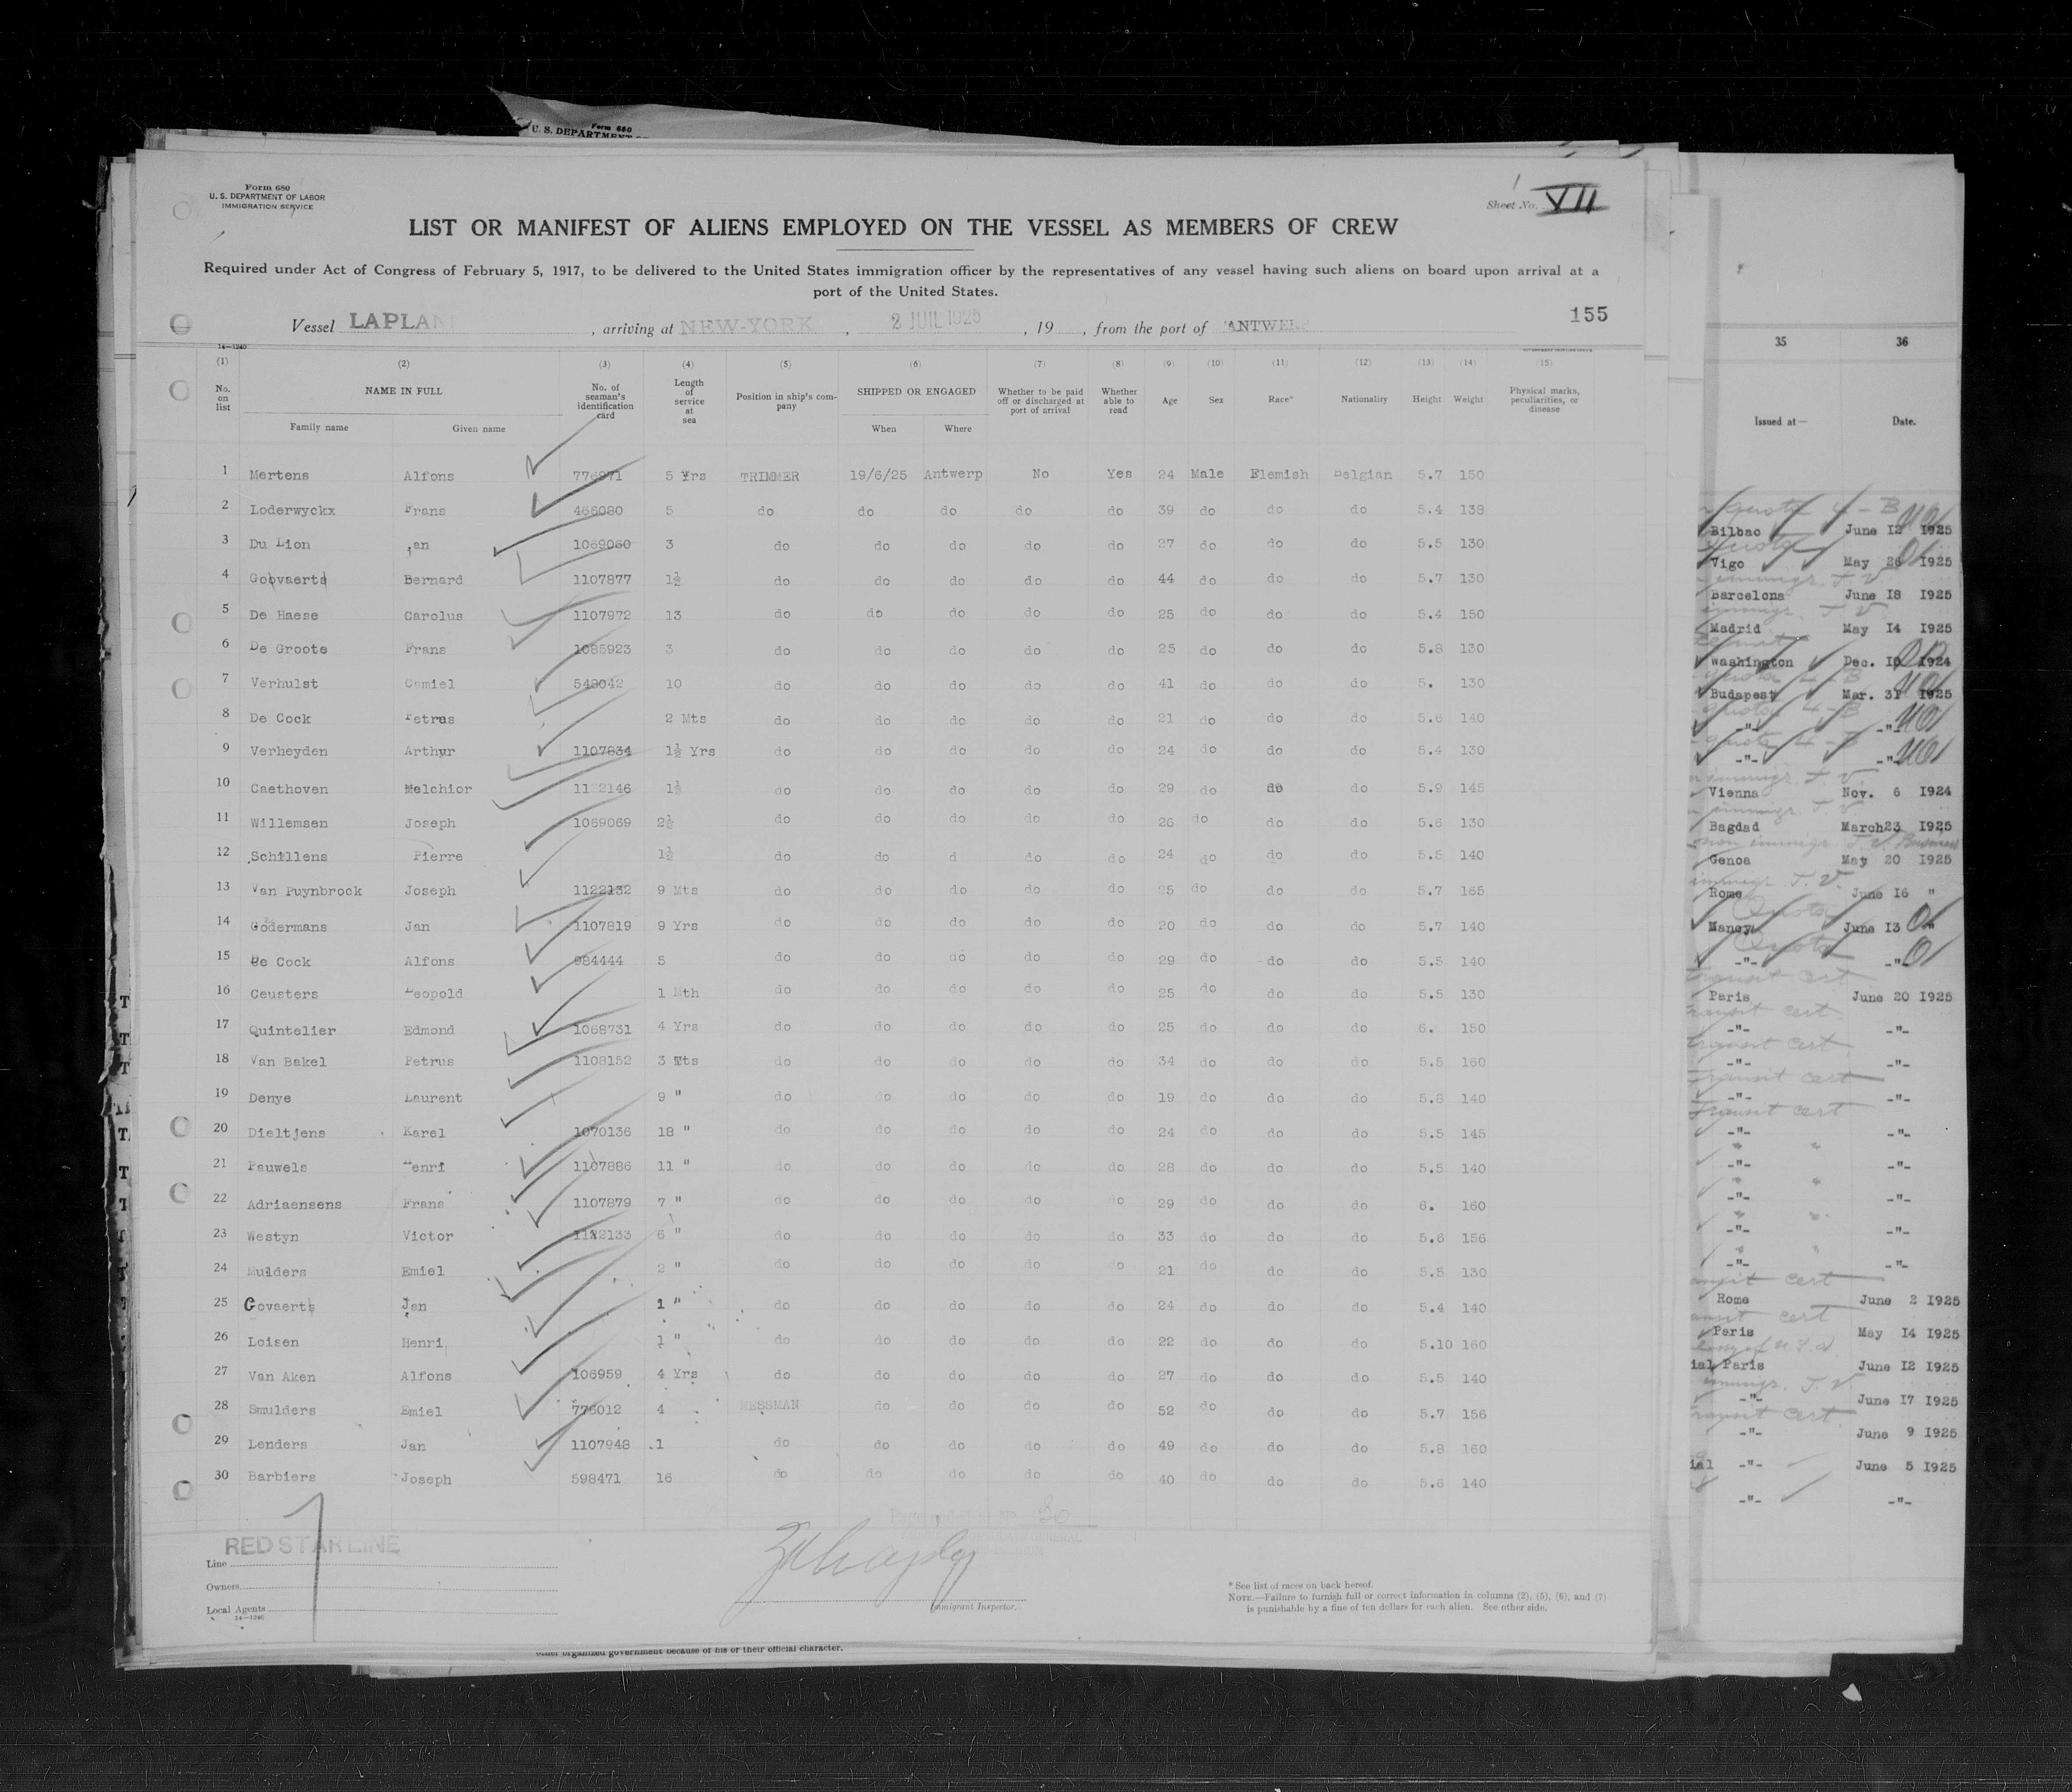 Form 680
U. S. DEPARTMENT
Form 680
U. S. DEPARTMENT OF LABOR
IMMIGRATION SERVICE
Sheet No. VII
LIST OR MANIFEST OF ALIENS EMPLOYED ON THE VESSEL AS MEMBERS OF CREW
Required under Act of Congress of February 5, 1917, to be delivered to the United States immigration officer by the representatives of any vessel having such aliens on board upon arrival at a
port of the United States.
155
Vessel LAPLAN , arriving at NEW-YORK , 2 JUIL 1925 , 19 , from the port of ANTWERP
14—1240
(1) (2) (3) (4) (5) (6) (7) (8) (9) (10) (11) (12) (13) (14) (15)
No. on list NAME IN FULL Family name Given name No. of seaman's identification card Length of service at sea Position in ship's company SHIPPED OR ENGAGED When Where Whether to be paid off or discharged at port of arrival Whether able to read Age Sex Race* Nationality Height Weight Physical marks, peculiarities, or disease
1 Mertens Alfons 776971 5 Yrs TRIMMER 19/6/25 Antwerp No Yes 24 Male Flemish Belgian 5.7 150
2 Loderwyckx Frans 466080 5 do do do do do 39 do do do 5.4 138
3 Du Lion Jan 1069060 3 do do do do do 27 do do do 5.5 130
4 Govaerts Bernard 1107877 1½ do do do do do 44 do do do 5.7 130
5 De Haese Carolus 1107972 13 do do do do do 25 do do do 5.4 150
6 De Groote Frans 1085923 3 do do do do do 25 do do do 5.8 130
7 Verhulst Camiel 548042 10 do do do do do 41 do do do 5. 130
8 De Cock Petrus 2 Mts do do do do do 21 do do do 5.6 140
9 Verheyden Arthur 1107834 1½ Yrs do do do do do 24 do do do 5.4 130
10 Caethoven Melchior 1122146 1½ do do do do do 29 do do do 5.9 145
11 Willemsen Joseph 1069069 2½ do do do do do 26 do do do 5.6 130
12 Schillens Pierre 1½ do do d do do 24 do do do 5.5 140
13 Van Puynbrock Joseph 1122132 9 Mts do do do do do 25 do do do 5.7 165
14 Godermans Jan 1107819 9 Yrs do do do do do 20 do do do 5.7 140
15 De Cock Alfons 984444 5 do do do do do 29 do do do 5.5 140
16 Ceusters Leopold 1 Mth do do do do do 25 do do do 5.5 130
17 Quintelier Edmond 1068731 4 Yrs do do do do do 25 do do do 6. 150
18 Van Bakel Petrus 1108152 3 Mts do do do do do 34 do do do 5.5 160
19 Denye Laurent 9 " do do do do do 19 do do do 5.8 140
20 Dieltjens Karel 1070136 18 " do do do do do 24 do do do 5.5 145
21 Pauwels Henri 1107886 11 " do do do do do 28 do do do 5.5 140
22 Adriaensens Frans 1107879 7 " do do do do do 29 do do do 6. 160
23 Westyn Victor 1122133 6 " do do do do do 33 do do do 5.6 156
24 Mulders Emiel 2 " do do do do do 21 do do do 5.5 130
25 Govaerts Jan 1 " do do do do do 24 do do do 5.4 140
26 Loisen Henri 1 " do do do do do 22 do do do 5.10 160
27 Van Aken Alfons 106959 4 Yrs do do do do do 27 do do do 5.5 140
28 Smulders Emiel 776012 4 MESSMAN do do do do 52 do do do 5.7 156
29 Lenders Jan 1107948 1 do do do do do 49 do do do 5.8 160
30 Barbiers Joseph 598471 16 do do do do do 40 do do do 5.6 140
30
RED STAR LINE
Line
Owners
Local Agents
14—1240
Immigrant Inspector.
* See list of races on back hereof.
NOTE.—Failure to furnish full or correct information in columns (2), (5), (6), and (7)
is punishable by a fine of ten dollars for each alien. See other side.
other organized government because of his or their official character.
35 36
Issued at— Date.
quota 4-B
Bilbao June 12 1925
Quota
Vigo May 26 1925
immigr. T.V.
Barcelona June 18 1925
immigr. T.V.
Madrid May 14 1925
Washington Dec. 10 1924
quota 4-B
Budapest Mar. 31 1925
quota 4-B
-"- -"-
quota 4-B
-"- -"-
immigr. T.V.
Vienna Nov. 6 1924
immigr. T.V.
Bagdad March 23 1925
non immigr. T.V. Business
Genoa May 20 1925
immigr. T.V.
Rome June 16 "
Quota
Nancy June 13 "
Quota
-"- -"-
transit cert
Paris June 20 1925
transit cert
-"- -"-
transit cert
-"- -"-
transit cert
-"- -"-
transit cert
-"- -"-
" "
-"- -"-
" "
-"- -"-
" "
-"- -"-
" "
-"- -"-
ansit cert
Rome June 2 1925
ansit cert
Paris May 14 1925
ial Paris June 12 1925
immigr. T.V.
-"- June 17 1925
transit cert
-"- June 9 1925
ial -"- June 5 1925
-"- -"-